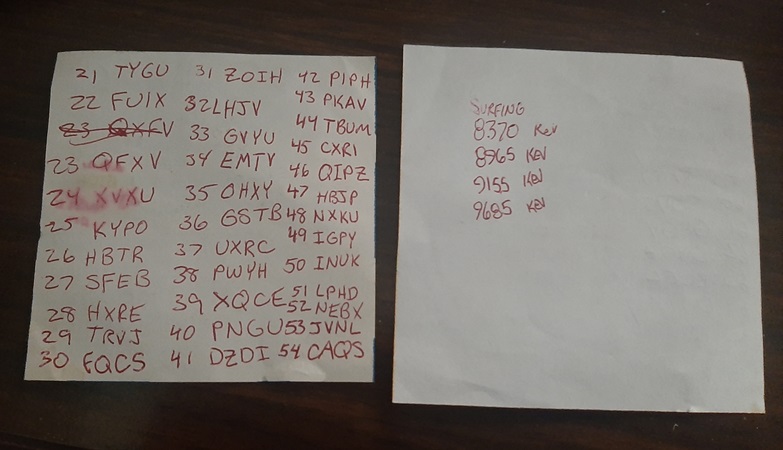 21 TYGU
22 FUIX
23 QXFV
23 QFXV
24 XVXU
25 KYPO
26 HBTR
27 SFEB
28 HXRE
29 TRVJ
30 EQCS
31 ZOIH
32 LHJV
33 GVYU
34 EMTY
35 OHXY
36 GSTB
37 UXRC
38 PWYH
39 XQCE
40 PNGU
41 DZDI
42 PIPH
43 PKAV
44 TBUM
45 CXRI
46 QIPZ
47 HBJP
48 NXKU
49 IGPY
50 INUK
51 LPHD
52 NEBX
53 JVNL
54 CAQS
SURFING
8370 KeV
8965 KeV
9155 KeV
9685 KeV